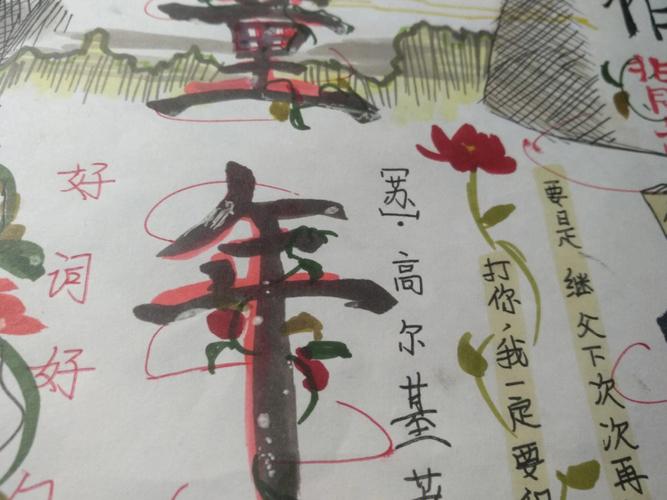 要是继父下次次再
打你,我一定要
[苏]·高尔基
年
好词好